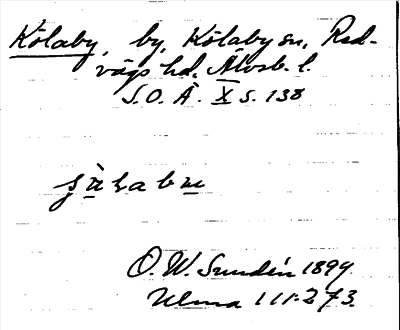 Kölaby, by, Kölaby sn, Red-
vägs hd. Älvsb. l.
S. O. Ä. X s. 138
O. W. Sundén 1899
Ulma 111:273.